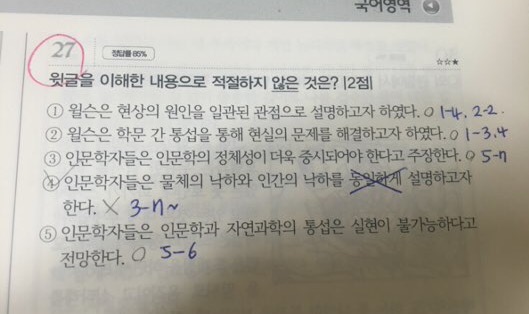 국어영역
27
정답률 85%
☆☆★
윗글을 이해한 내용으로 적절하지 않은 것은? |2점|
① 윌슨은 현상의 원인을 일관된 관점으로 설명하고자 하였다. O 1-4, 2-2.
② 윌슨은 학문 간 통섭을 통해 현실의 문제를 해결하고자 하였다. O 1-3,4
③ 인문학자들은 인문학의 정체성이 더욱 중시되어야 한다고 주장한다. O 5-7
④ 인문학자들은 물체의 낙하와 인간의 낙하를 동일하게 설명하고자
한다. X 3-7~
⑤ 인문학자들은 인문학과 자연과학의 통섭은 실현이 불가능하다고
전망한다. O 5-6